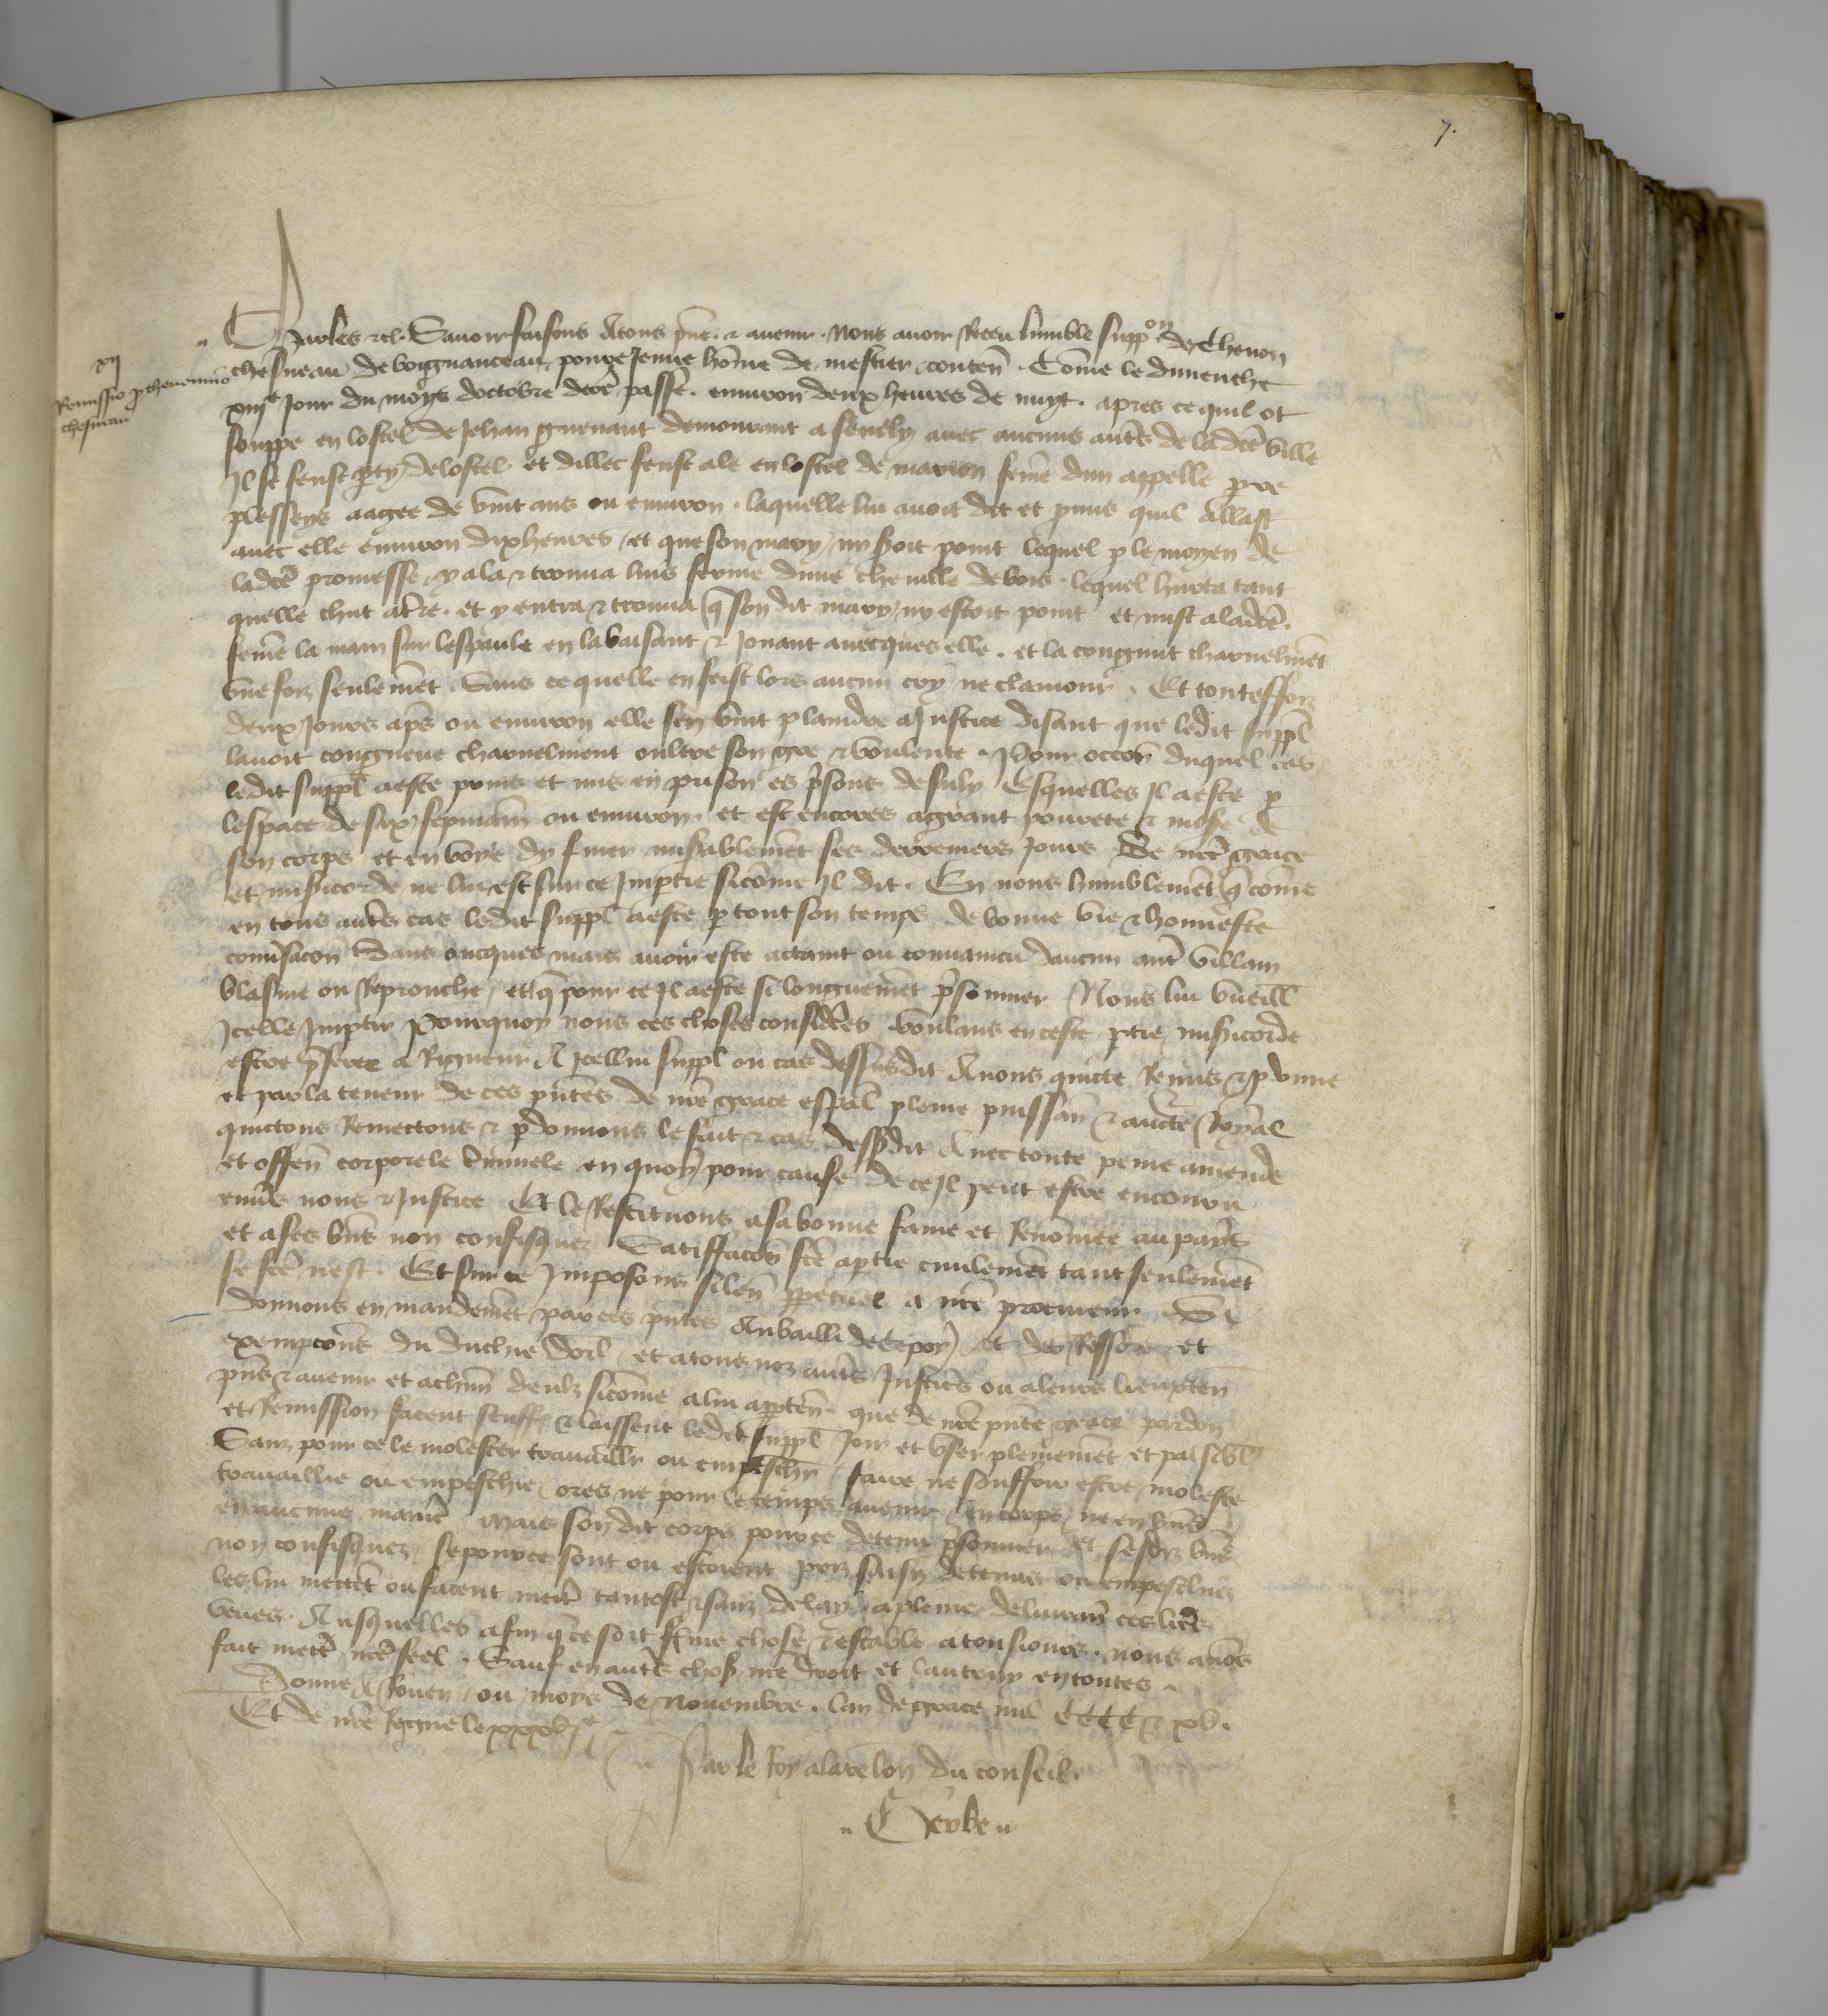 7.
Charles etc. Savoir faisons A tous pñs . & avenir . Nous avoir Receu humble suppon de Thenon
xii
Remissio p thenennio
chesneau
chesneau de voignanceau povre Jeune hõme de mestier conteñ . Cõme le dimenche
xiiie Jour du moys doctobre derr̃ passe . environ deux heures de nuyt . apres ce quil ot
souppe en lostel de Jehan guenaut demourant a senely avec aucuns autr̃s de lad̃ce ville
Il se feust pty de lostel et dillec feust ale en lostel de marion fem̃e dun appelle pre
plesseys aagee de vint ans ou environ . laquelle lui avoit dit et pmis quil Allast
avec elle environ dix heures et que son mary ny seroit point lequel p le moyen de
lad̃ce promesse y ala & trouva luis ferme dune cheville de bois . lequel hurta tant
quelle chut a tr̃e . et y entra & trouva q̃ son dit mary ny estoit point et mist a lad̃ce
fem̃e la main sur lespaule en la baisant & Jouant avecques elle . et la congnut charnelm̃et
une foiz seulem̃ent . Sans ce quelle en feist lors aucun cry ne clamour . Et touteffoiz
deux Jours ap̃s ou environ elle sen vint plaindre a Justice disant que ledit suppl̃
lavoit congneue charnelment oultre son gre & voulente . Pour occon̄ duquel cas
ledit suppl̃ a este prins et mis en prison es p̃sons de suly Esquelles Il a este p
lespace de six sepmain̄ ou environ . et est encores a grant povrete & mis̃e de
son corps et en voye dy finer mis̃ablem̃et ses derreniers Jours Se nr̃e grace
et mis̃icorde ne lui est sur ce Imptie sicõme Il dit . En nous humblem̃et q̃ cõme
en tous autr̃s cas ledit suppl̃ a este p tout son temps de bonne vie & honneste
conṽsacon̄ Sans oncques mais avoir este actaint ou convaincu daucun autr̃ villain
blasme ou Reprouche , et q̃ pour ce Il a este si longuem̃et p̃sonnier Nous lui vueill̃
Icelle Imptir Pourquoy nous ces choses considr̃es voulans en ceste ptie mis̃icorde
estre p̃feree a Rigueur A Icellui suppl̃ ou cas dessusdit Avons quicte Remis & pdonne
et par la teneur de ces pñtes de nr̃e grace esp̃al pleine puissañ & aucte Royal
quictons Remectons & pdonnons le fait & cas dessusdit Avec toute peine amende
et offeñ corporele Criminele en quoy pour cause de ce Il peut estre encouru
env̄s nous & Justice Et le Restituons a sa bonne fame et Renõmee au pays
et a ses biẽs non confisquez Satisffacon̄ fc̃e a ptie civilem̃et tant seulem̃et
se fc̃e nest . Et sur ce Imposons sileñ ppetuel a nr̃e procureur . Si
donnons en mandem̃et par ces pñtes Au bailli de Cepoy et des Ressors et
exempcon̄s du duchie dorl̃ et a tous noz autr̃s Justicr̃s ou a leurs lieuxteñ
pñs & avenir et a chun̄ deulx sicõme a lui appteñ . que de nr̃e pñte grace pardon
et Remission facent seuffr̃ & laissent ledit suppl̃ Joir et user plainem̃et et paisibl̃
Sanz pour ce le molester travaillr̃ ou empeschr̃ faire ne souffrir estre moleste
travaillie ou empeschie ores ne pour le temps avenir en corps ne en biẽs
en aucune manir̃e Mais son dit corps pour ce detenu p̃sonnier et sesdiz biẽs
non confisquez , se pour ce sont ou estoient prz saisiz detenus ou empeschiez
les lui mectẽt ou facent mectr̃ tantost & sanz delay a pleine delivrañ ces lr̃es
veues . Ausquelles afin q̃ ce soit ferme chose & estable a tousiours . nous avõs
fait mectr̃ nr̃e seel . Sauf en autr̃s choses nr̃e droit et lautruy en toutes .
Donne A Rouen ou moys de Novembre . lan de grace mil CCCC & xv .
Et de nr̃e Regne le xxxvje
Par le Roy a la relon̄ du conseil .
Gerbe